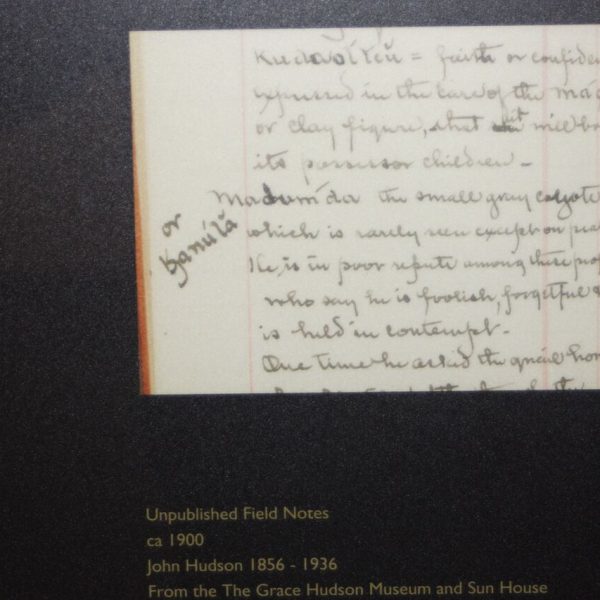 = faith or confide
expressed in the case of the mag
or clay figure, that it will br
its possessor children -
Madum'da the small gray coyote
or Kanúlă
which is rarely seen except on
He, is in poor repute among these
who say he is foolish, forgetful &
is held in contempt -
One time he asked the quail how
Unpublished Field Notes
ca 1900
John Hudson 1856 - 1936
From the The Grace Hudson Museum and Sun House